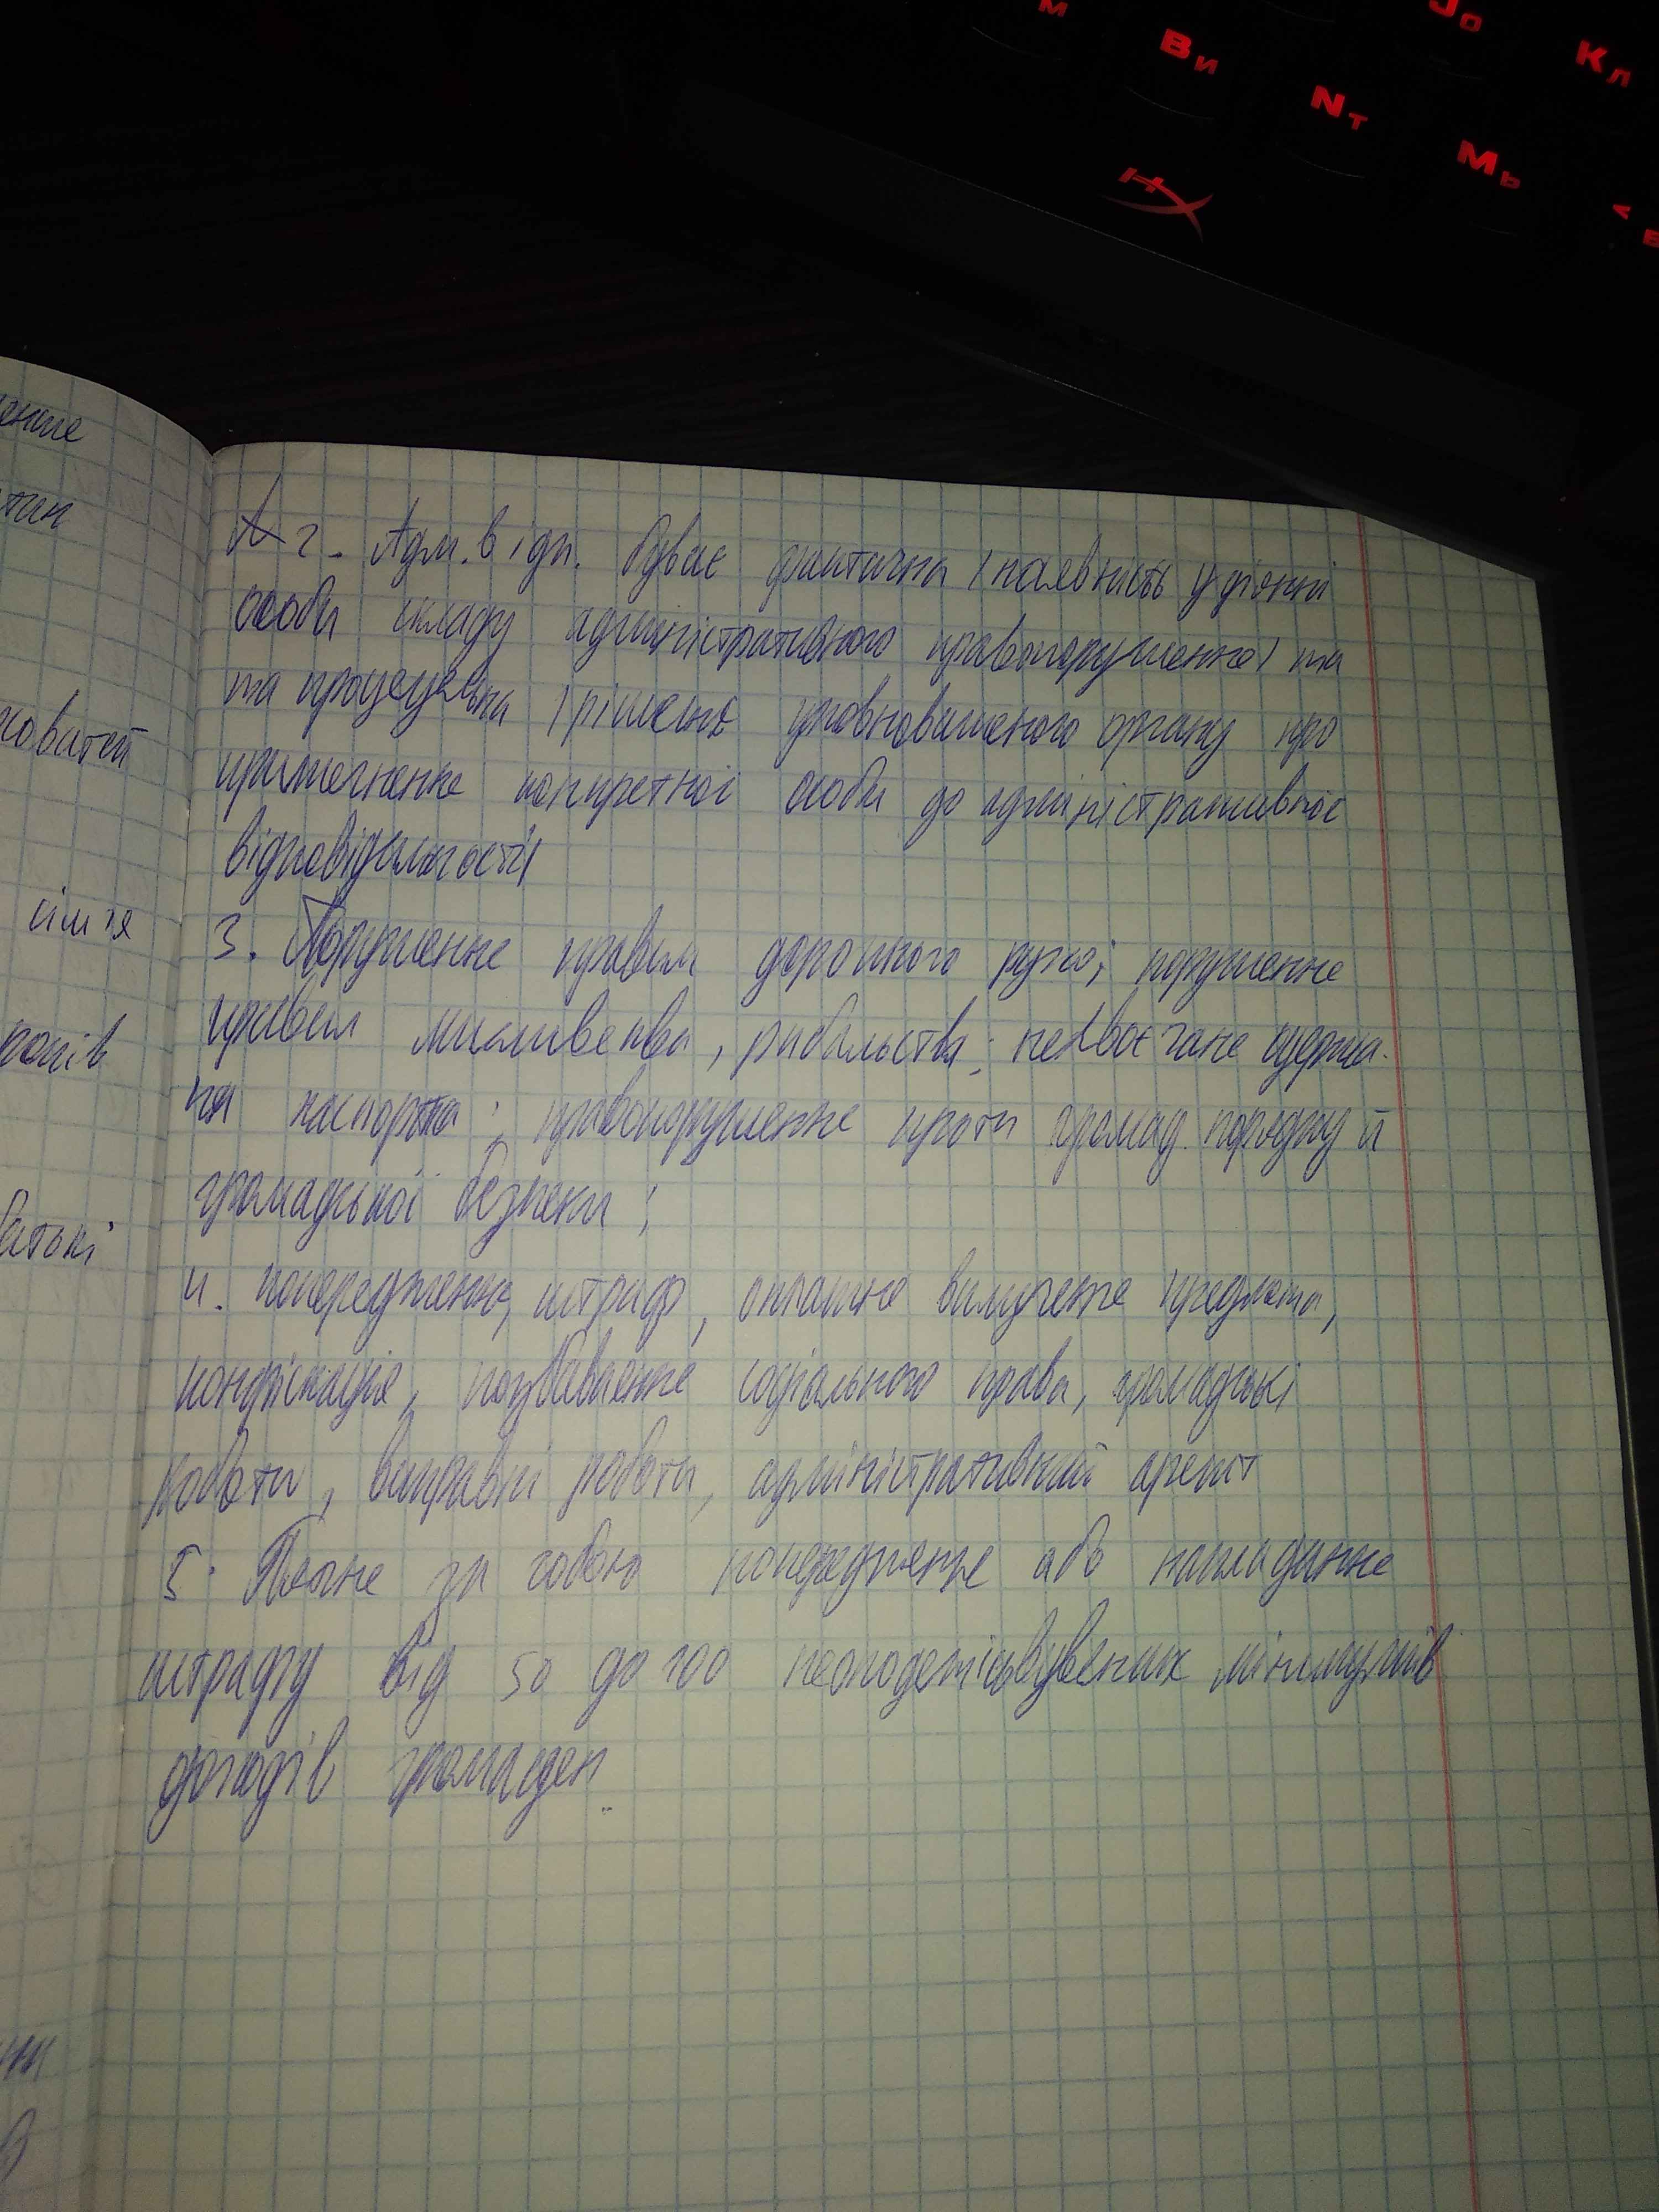 М
В И
N Т
J О
К Л
М Ь
HX
2. Адм. відп. буває фактична (наявність у діянні
особи складу адміністративного правопорушення) та
та процесуальна (рішення уповноваженого органу про
притягнення конкретної особи до адміністративної
відповідальності)
3. Порушення правил дорожнього руху; порушення
правил мисливства, рибальства; несвоєчасне одержа-
ня паспорта; правопорушення проти громад. порядку й
громадської безпеки;
4. попередження, штраф, оплатне вилучення предмета,
конфіскація, позбавлення соціального права, громадські
роботи, виправні роботи, адміністративний арешт
5. Тягне за собою попередження або накладання
штрафу від 50 до 100 неоподатковуваних мінімумів
доходів громадян
сім'я